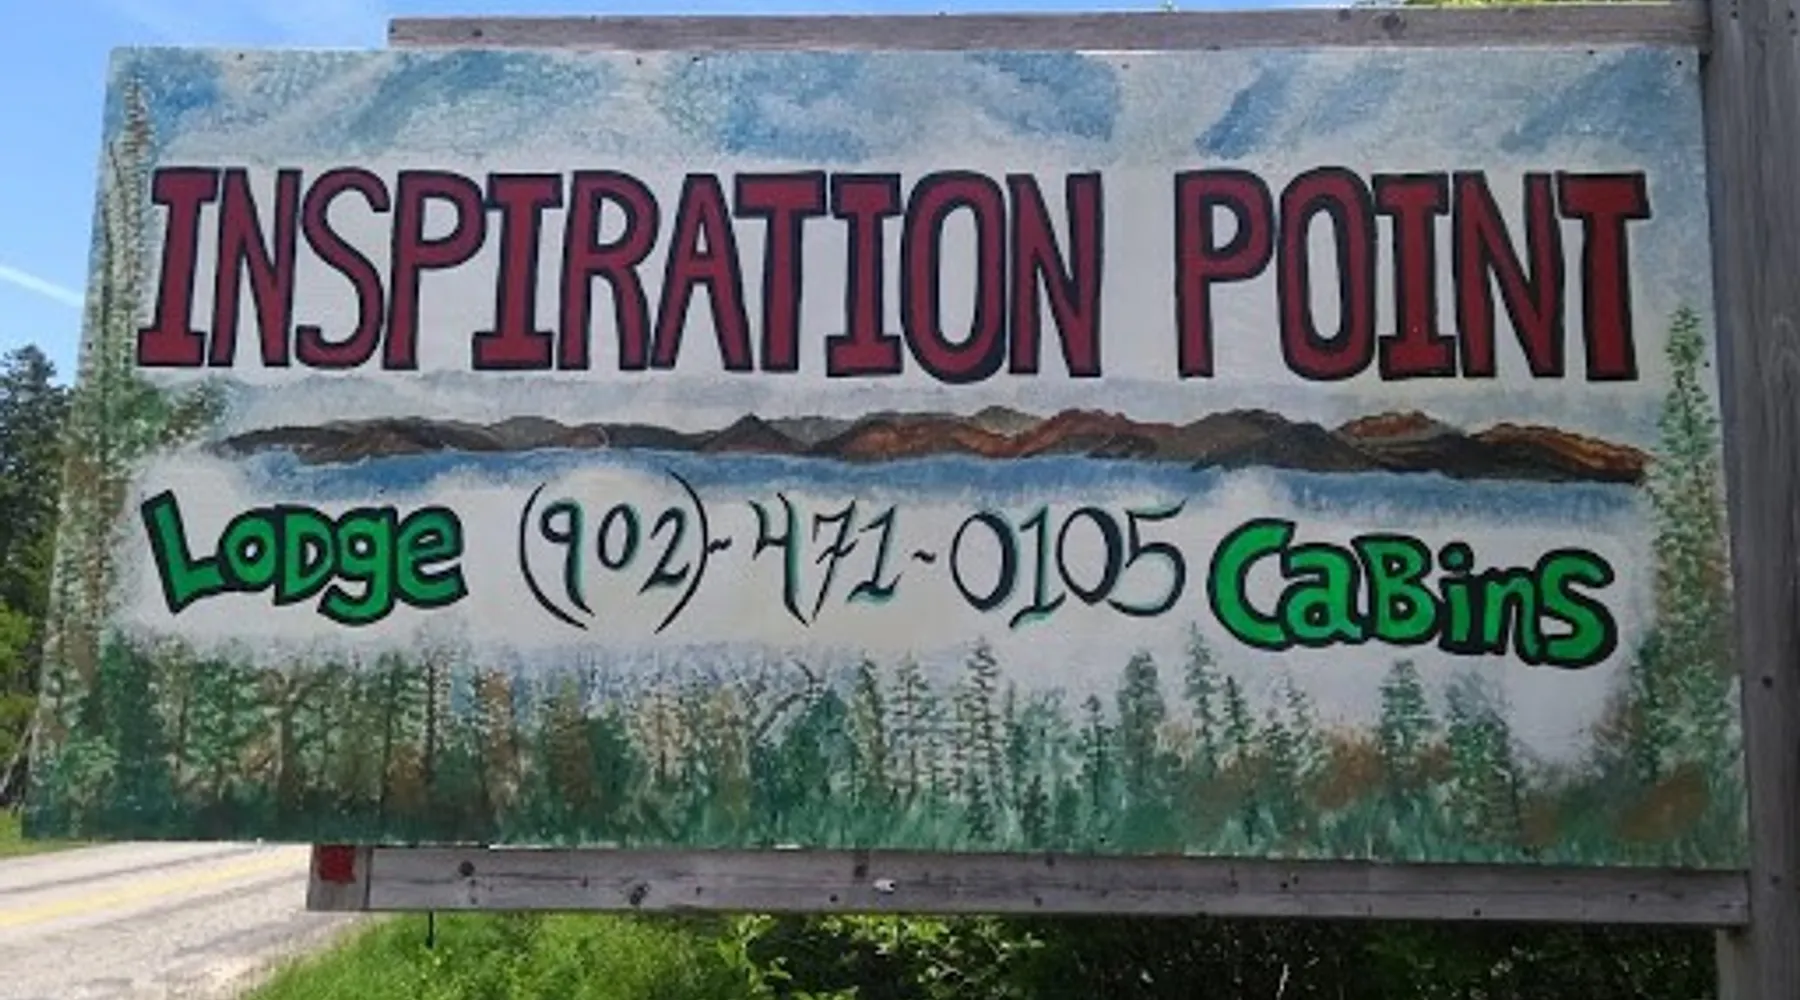 INSPIRATION POINT
Lodge (902)-471-0105 Cabins